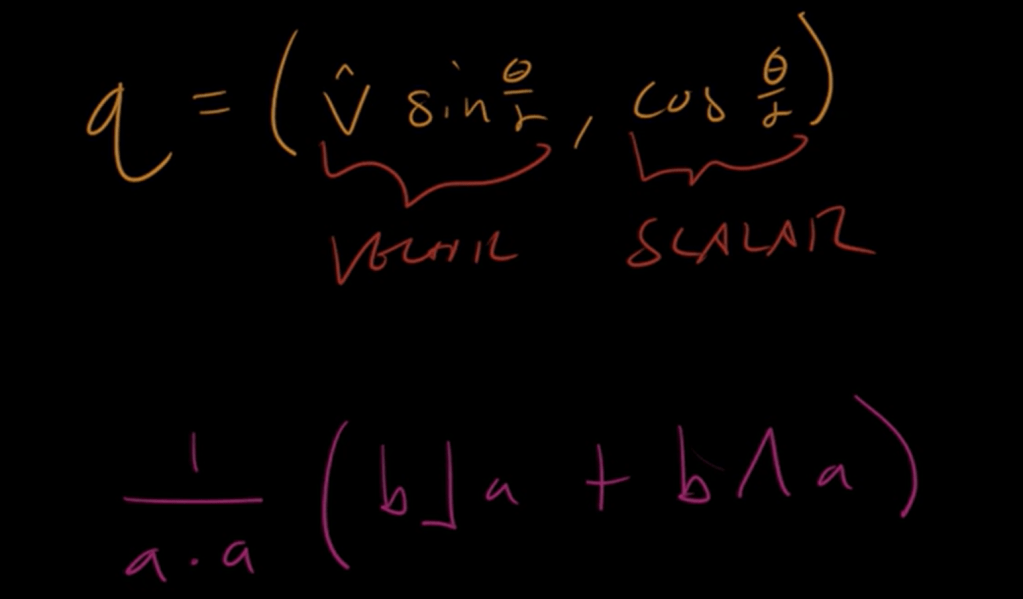 q = (v̂ sin θ/2, cos θ/2)
VECTOR SCALAR
1/(a · a) (b⌋a + b∧a)